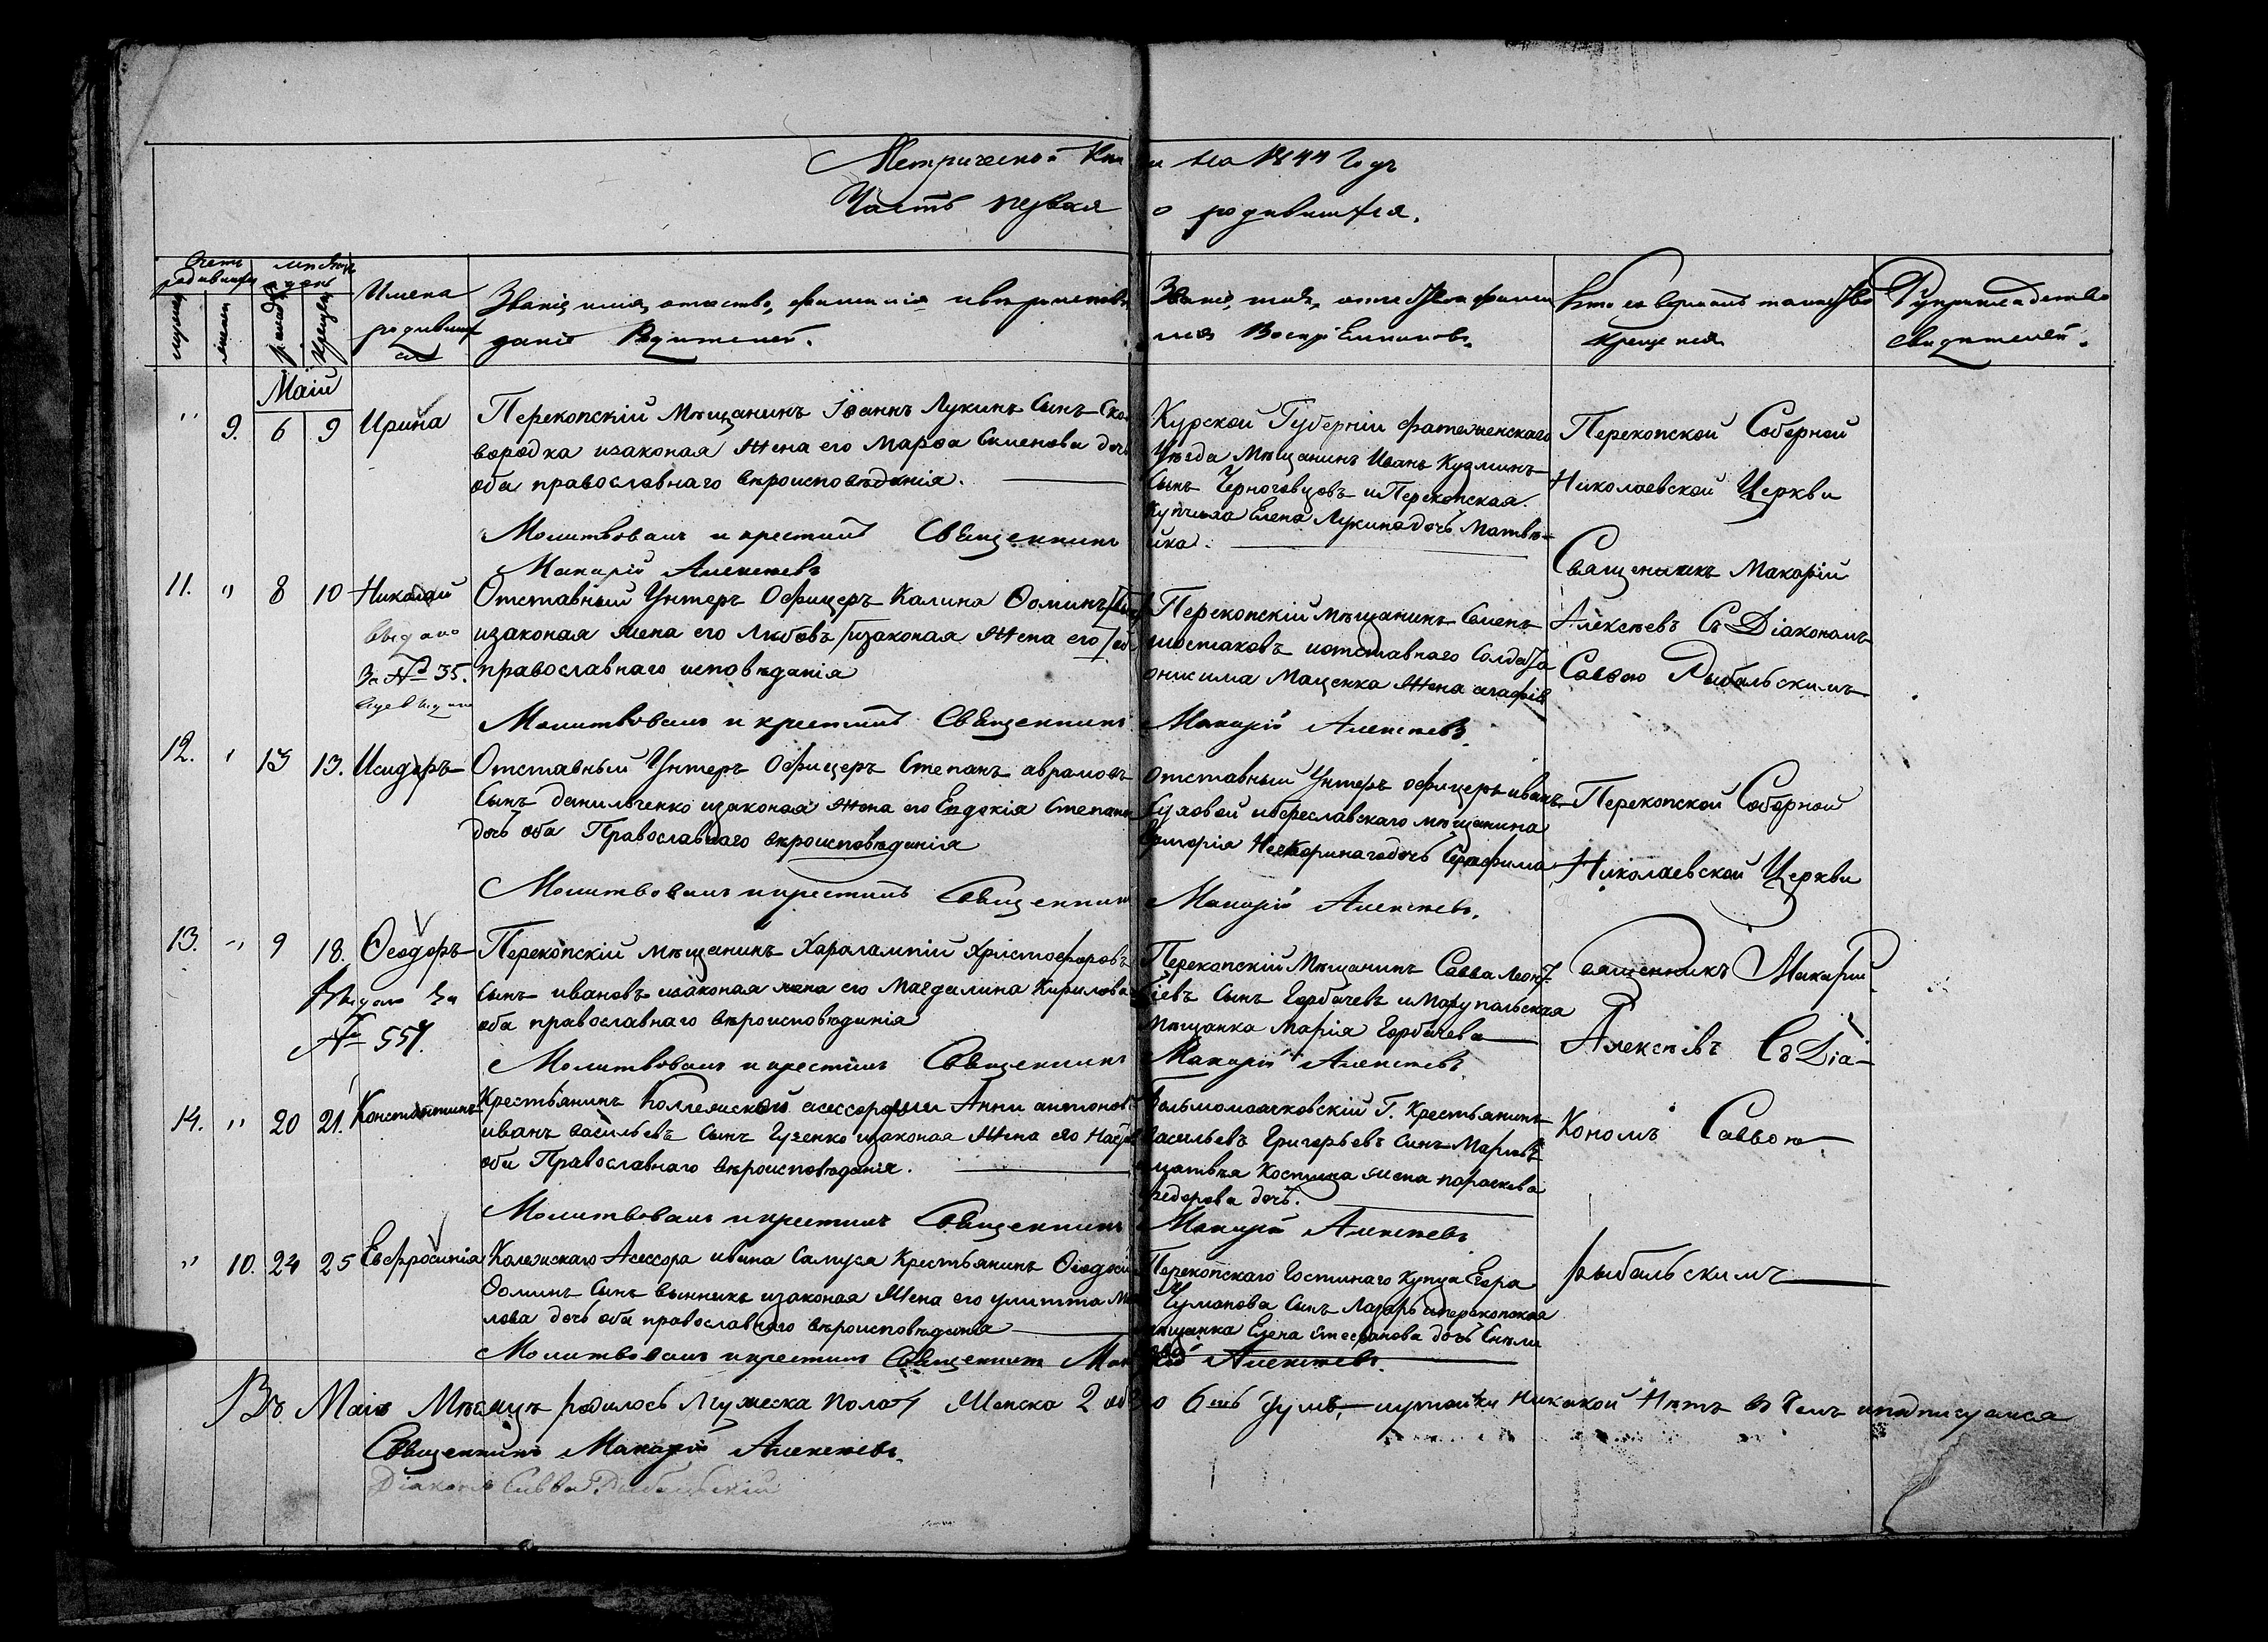 Метрической Книги на 1844 Годъ
Часть первая о родившихся.
Счетъ родившихся
мужеска
женска
месяцъ и день
рожден
крещен
Имена родившихся
Званіе имя, отчество, фамилія и вероисповедание Родителей.
Званіе, имя, отечество и фамилия Воспріемниковъ.
Кто совершалъ таинство крещения
Рукоприкладство свидетелей.
Маій
" 9. 6 9 Ирина
Перекопскій Мѣщанинъ Іоаннъ Лукинъ Сынъ Ско-
вородка изаконая жена его Марѳа Семенова дочь
оба православнаго вѣроисповѣданія.
Молитвовалъ и крестилъ Священникъ
Макарій Алексѣевъ
Курской Губерніи фатеженскаго
Уѣзда Мѣщанинъ Иванъ Кузминъ
Сынъ Черноговцовъ и Перекопская
Купчиха Елена Лукина дочь Матвѣ-
йка.
Перекопской Соборной
Николаевской Церкви
Священникъ Макарій
Алексѣевъ Съ Діакономъ
Саввою Рыбальскимъ
11. " 8 10 Николай
Выдано
За № 35.
Отставный Унтеръ Офицеръ Калина Ѳоминъ
изаконая жена его Любовь /изаконая жена его/
православнаго исповѣданія
Молитвовалъ и крестилъ Священникъ Макарій Алексѣевъ.
Перекопскій мѣщанинъ Семенъ
шостаковъ иотставнаго Солдата
онисима Маценка жена агафія
12. " 13 13. Исидоръ
Отставный Унтеръ Офицеръ Степанъ аврамовъ
Сынъ данильченко изаконая жена его Евдокія Степанов
дочь оба Православнаго вѣроисповѣданія
Молитвовалъ и крестилъ Священникъ Макарій Алексѣевъ.
отставный Унтеръ офицеръ иванъ
Суховой ибереславскаго мѣщанина
Григорія дочь Серафима
Перекопской Соборной
Николаевской Церкви
13. " 9 18. Ѳеодоръ
Выдано За
№ 557.
Перекопскій мѣщанинъ Харалампій Христофоровъ
Сынъ ивановъ изаконая жена его Магдалина Кирилова
оба православнаго вѣроисповѣданія
Молитвовалъ и крестилъ Священникъ Макарій Алексѣевъ.
Перекопскій Мѣщанинъ Савва Леонт
іевъ Сынъ Горбачевъ и Маріупольская
Мѣщанка Марія Горбачева
Священникъ Макарій
Алексѣевъ Съ Діа-
кономъ Саввою
14. " 20 21. Константинъ
Крестьянинъ Коллежской асессорши Анни антонов
иванъ васильевъ Сынъ Гузенко изаконая жена его
оба Православнаго вѣроисповѣданія.
Молитвовалъ и крестилъ Священникъ Макарій Алексѣевъ.
Г. Крестьянинъ
Васильевъ Григорьевъ Синъ
жена параскева
федорова дочь.
" 10. 24 25 Евфросинія
Колежскаго Асессора ивана Самуся Крестьянинъ Ѳеодосій
Ѳоминъ Сынъ изаконая жена его улитта
лова дочь оба православнаго вѣроисповѣданія
Молитвовалъ и крестилъ Священникъ Макарій Алексѣевъ.
Перекопскаго Гостинаго Купца Егора
Чуманова Сынъ Лазарь иперекопская
мѣщанка Елена Стефанова дочь
Рыбальскимъ
Въ Маіѣ Мѣсяцѣ родилось Мужеска пола 4 Женска 2 обоего 6ть душъ, никакой Нѣтъ в чемъ иподписуемся
Священникъ Макарій Алексѣевъ.
Діаконъ Савва Рыбальскій